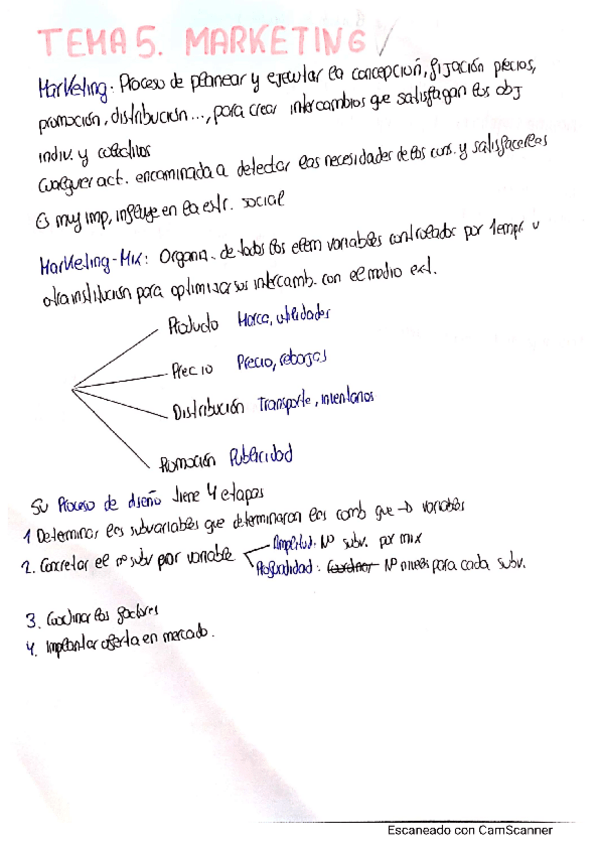 TEMA 5. MARKETING
Marketing: Proceso de planear y ejecutar la concepción, fijación precios,
promoción, distribución..., para crear intercambios que satisfagan los obj
indiv. y colectivos
Cualquier act. encaminada a detectar las necesidades de los cons. y satisfacerlas
Es muy imp, influye en la estr. social
Marketing-Mix: Organiz. de todos los elem variables controlados por 1 empr u
otra institución para optimizar sus intercamb. con el medio ext.
Producto Marca, utilidades
Precio Precio, rebajas
Distribución Transporte, inventarios
Promoción Publicidad
Su Proceso de diseño tiene 4 etapas
1 Determinar los subvariables que determinaran los comb que → variables
2. Concretar el nº subv por variable
Amplitud: Nº subv. por mix
Profundidad: Nº niveles para cada subv.
3. Coordinar los factores
4. Implantar oferta en mercado.
Escaneado con CamScanner